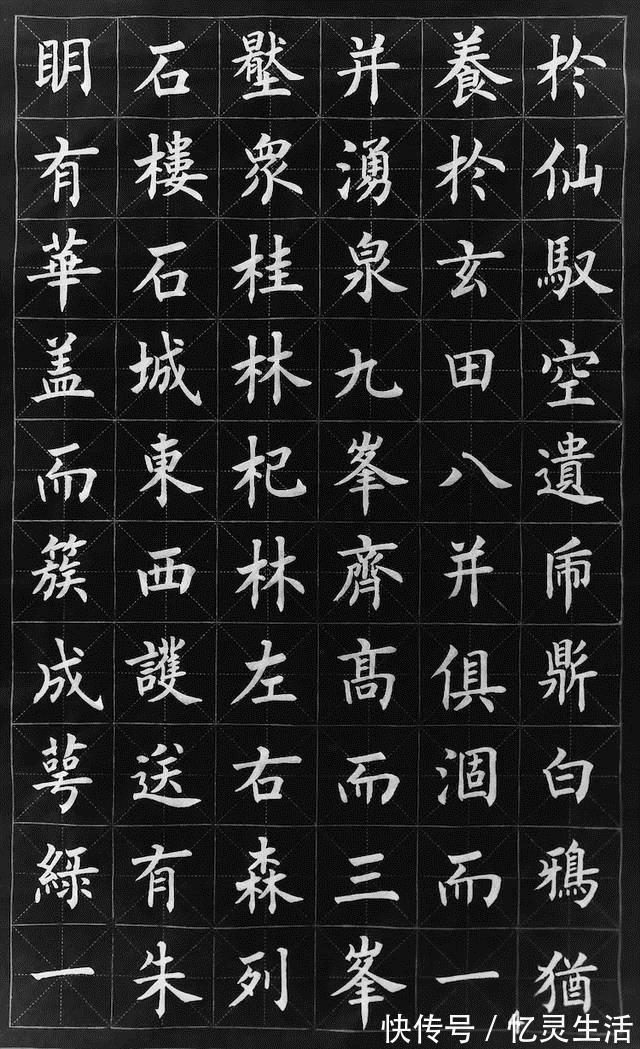 於仙馭空遺乕鼎白鴉猶
養於玄田八并俱涸而一
并湧泉九峯齊髙而三峯
壓衆桂林杞林左右森列
石樓石城東西護送有朱
眀有華盖而簇成萼綠一
快传号 / 忆灵生活